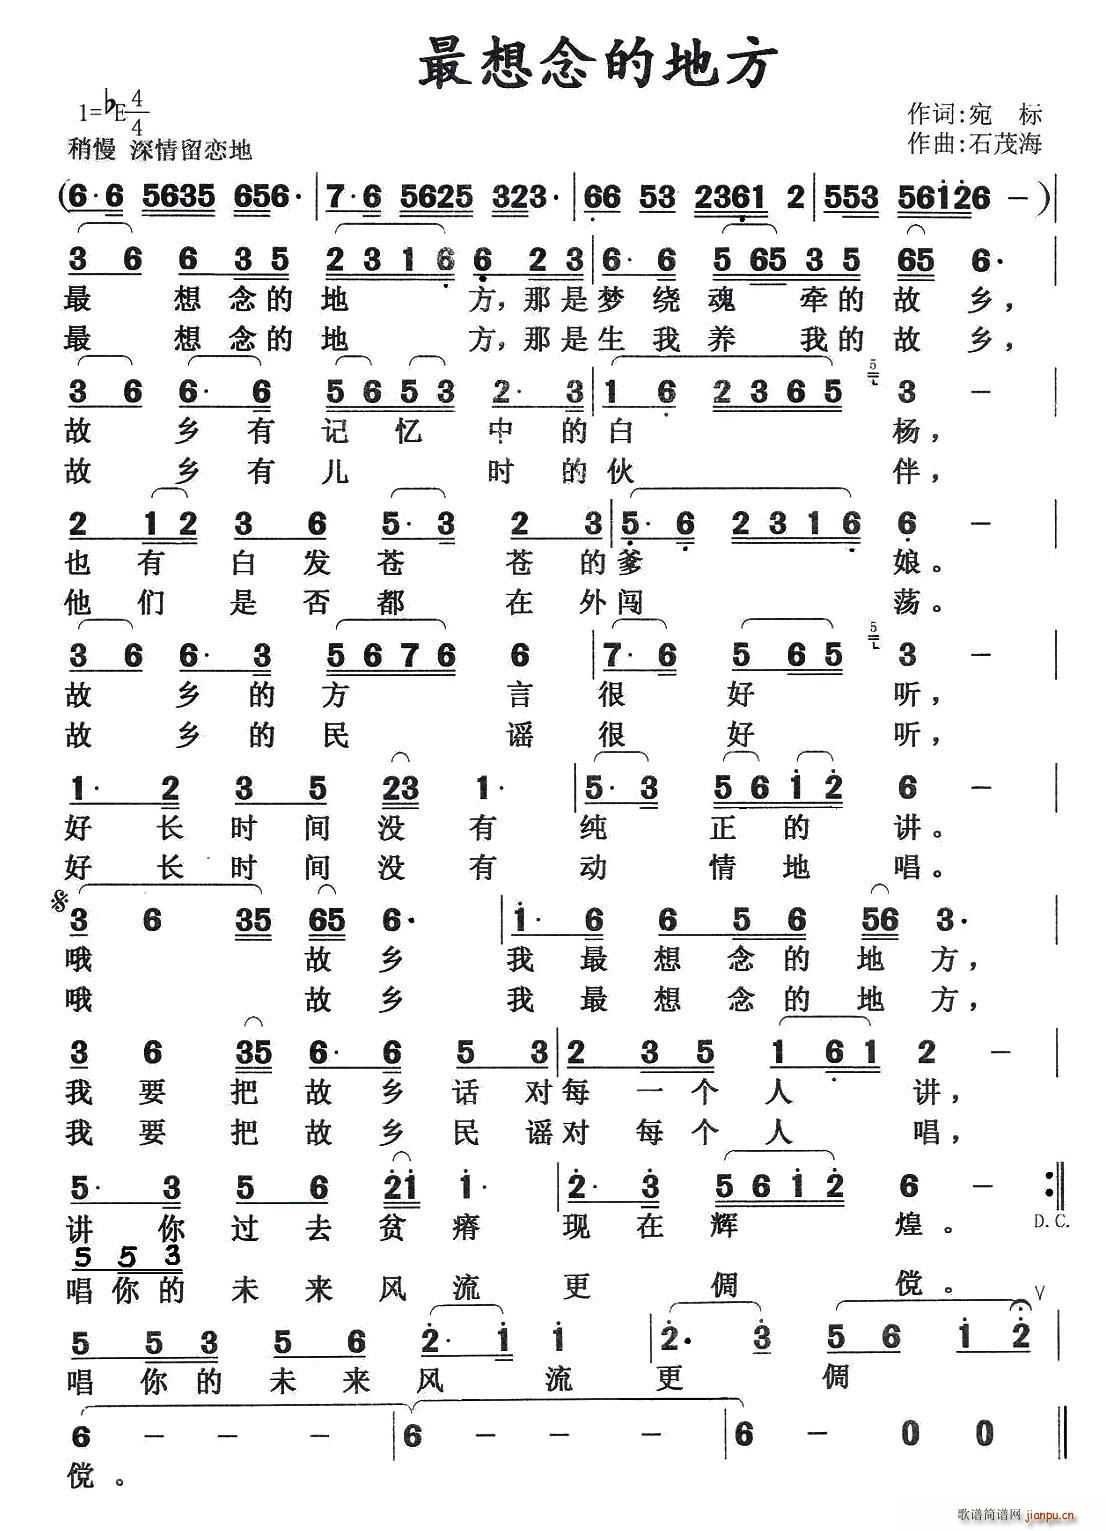 最想念的地方
1=♭E 4/4
作词:宛 标
稍慢 深情留恋地
作曲:石茂海
(6·6 5635 656· | 7·6 5625 323· | 66 53 2361 2 | 553 56126 — ) |
3 6 6 3 5 2 3 1 6 6 2 3 | 6· 6 5 65 3 5 65 6· |
最 想 念 的 地 方, 那 是 梦 绕 魂 牵 的 故 乡,
最 想 念 的 地 方, 那 是 生 我 养 我 的 故 乡,
3 6 6· 6 5 6 5 3 2· 3 | 1 6 2 3 6 5 5 3 — |
故 乡 有 记 忆 中 的 白 杨,
故 乡 有 儿 时 的 伙 伴,
2 1 2 3 6 5· 3 2 3 | 5· 6 2 3 1 6 6 — |
也 有 白 发 苍 苍 的 爹 娘。
他 们 是 否 都 在 外 闯 荡。
3 6 6· 3 5 6 7 6 6 | 7· 6 5 6 5 5 3 — |
故 乡 的 方 言 很 好 听,
故 乡 的 民 谣 很 好 听,
1· 2 3 5 23 1· | 5· 3 5 6 1 2 6 — |
好 长 时 间 没 有 纯 正 的 讲。
好 长 时 间 没 有 动 情 地 唱。
3 6 35 65 6· | 1· 6 6 5 6 56 3· |
哦 故 乡 我 最 想 念 的 地 方,
哦 故 乡 我 最 想 念 的 地 方,
3 6 35 6· 6 5 3 | 2 3 5 1 6 1 2 — |
我 要 把 故 乡 话 对 每 一 个 人 讲,
我 要 把 故 乡 民 谣 对 每 个 人 唱,
5· 3 5 6 21 1· | 2· 3 5 6 1 2 6 — :‖
讲 你 过 去 贫 瘠 现 在 辉 煌。 D.C.
5 5 3
唱 你 的 未 来 风 流 更 倜 傥。
5 5 3 5 6 2· 1 1 | 2· 3 5 6 1 2 |
唱 你 的 未 来 风 流 更 倜
6 — — — | 6 — — — | 6 — 0 0 ‖
傥。
歌谱简谱网 jianpu.cn